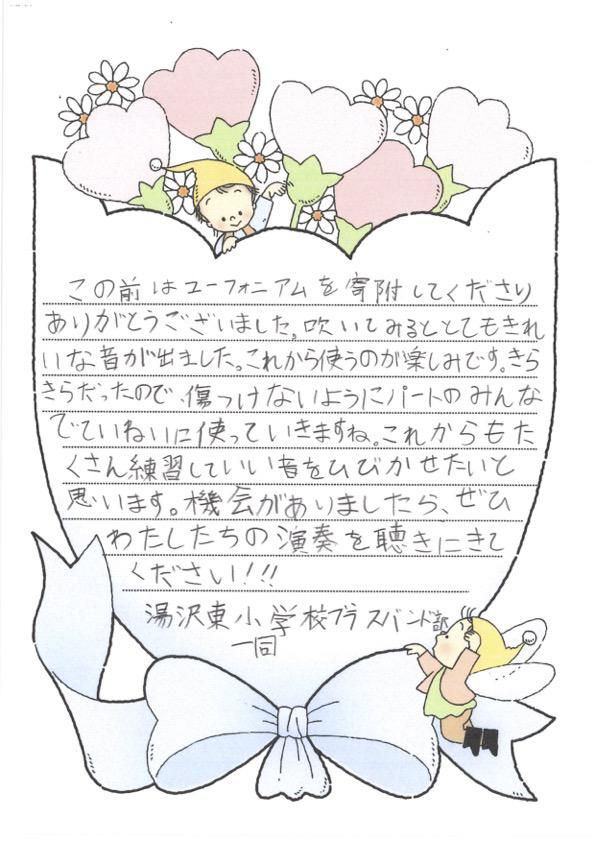 この前はユーフォニアムを寄附してくださり
ありがとうございました。吹いてみるととてもきれ
いな音が出ました。これから使うのが楽しみです。きら
きらだったので、傷つけないようにパートのみんな
でていねいに使っていきますね。これからもた
くさん練習していい音をひびかせたいと
思います。機会がありましたら、ぜひ
わたしたちの演奏を聴きにきて
ください!!!
湯沢東小学校ブラスバンド部
一同